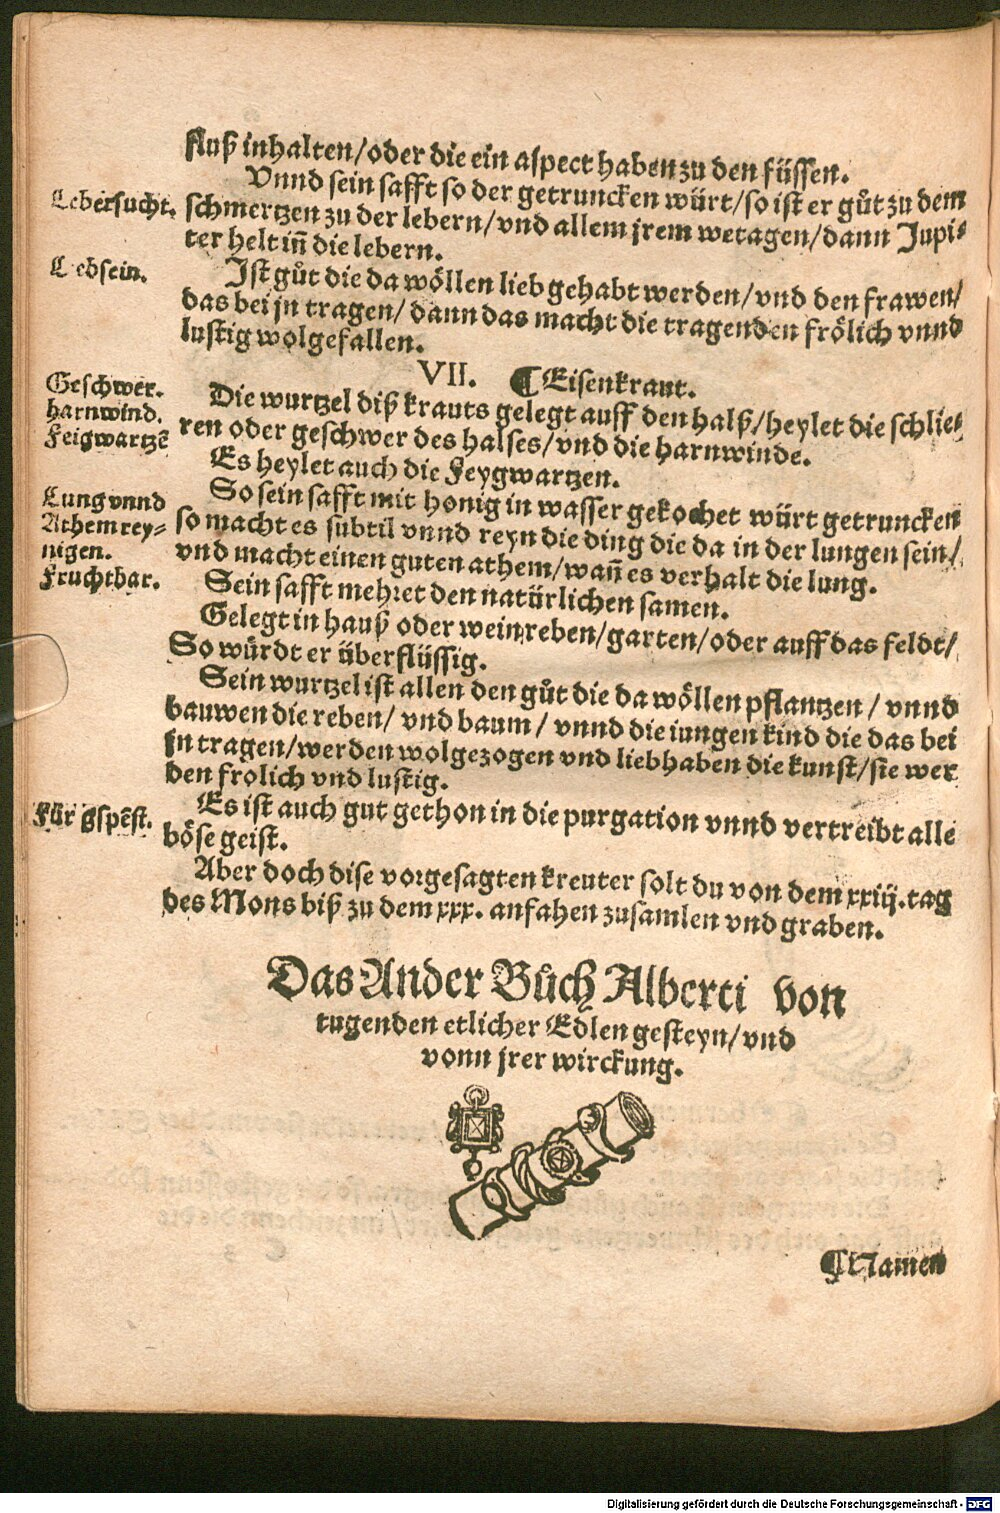 fluß inhalten/oder die ein aspect haben zu den füssen.
Vnnd sein safft so der getruncken würt/so ist er gůt zu dem
Lebersucht. schmertzen zu der lebern/vnd allem jrem wetagen/dann Jupi-
ter helt iñ die lebern.
Lebsein. Ist gůt die da wöllen lieb gehabt werden/vnd den frawen/
das bei jn tragen/dann das macht die tragenden frölich vnnd
lustig wolgefallen.
VII. ¶Eisenkraut.
Geschwer. Die wurtzel diß krauts gelegt auff den halß/heylet die schlie-
harnwind. ren oder geschwer des halses/vnd die harnwinde.
Feigwartzē Es heylet auch die Feygwartzen.
Lung vnnd So sein safft mit honig in wasser gekochet würt getruncken
Athem rey- so macht es subtil vnnd reyn die ding die da in der lungen sein/
nigen. vnd macht einen guten athem/wañ es verhalt die lung.
Fruchtbar. Sein safft mehret den natürlichen samen.
Gelegt in hauß oder weinreben/garten/oder auff das feldt/
So würdt er überflüssig.
Sein wurtzel ist allen den gůt die da wöllen pflantzen/vnnd
bauwen die reben/vnd baum/vnnd die iungen kind die das bei
jn tragen/werden wolgezogen vnd liebhaben die kunst/sie wer
den frolich vnd lustig.
Für gspēst. Es ist auch gut gethon in die purgation vnnd vertreibt alle
böse geist.
Aber doch dise vorgesagten kreuter solt du von dem xxiij.tag
des Mons biß zu dem xxx. anfahen zusamlen vnd graben.
Das Ander Bůch Alberti von
tugenden etlicher Edlen gesteyn/vnd
vonn jrer wirckung.
¶Namen
Digitalisierung gefördert durch die Deutsche Forschungsgemeinschaft - DFG